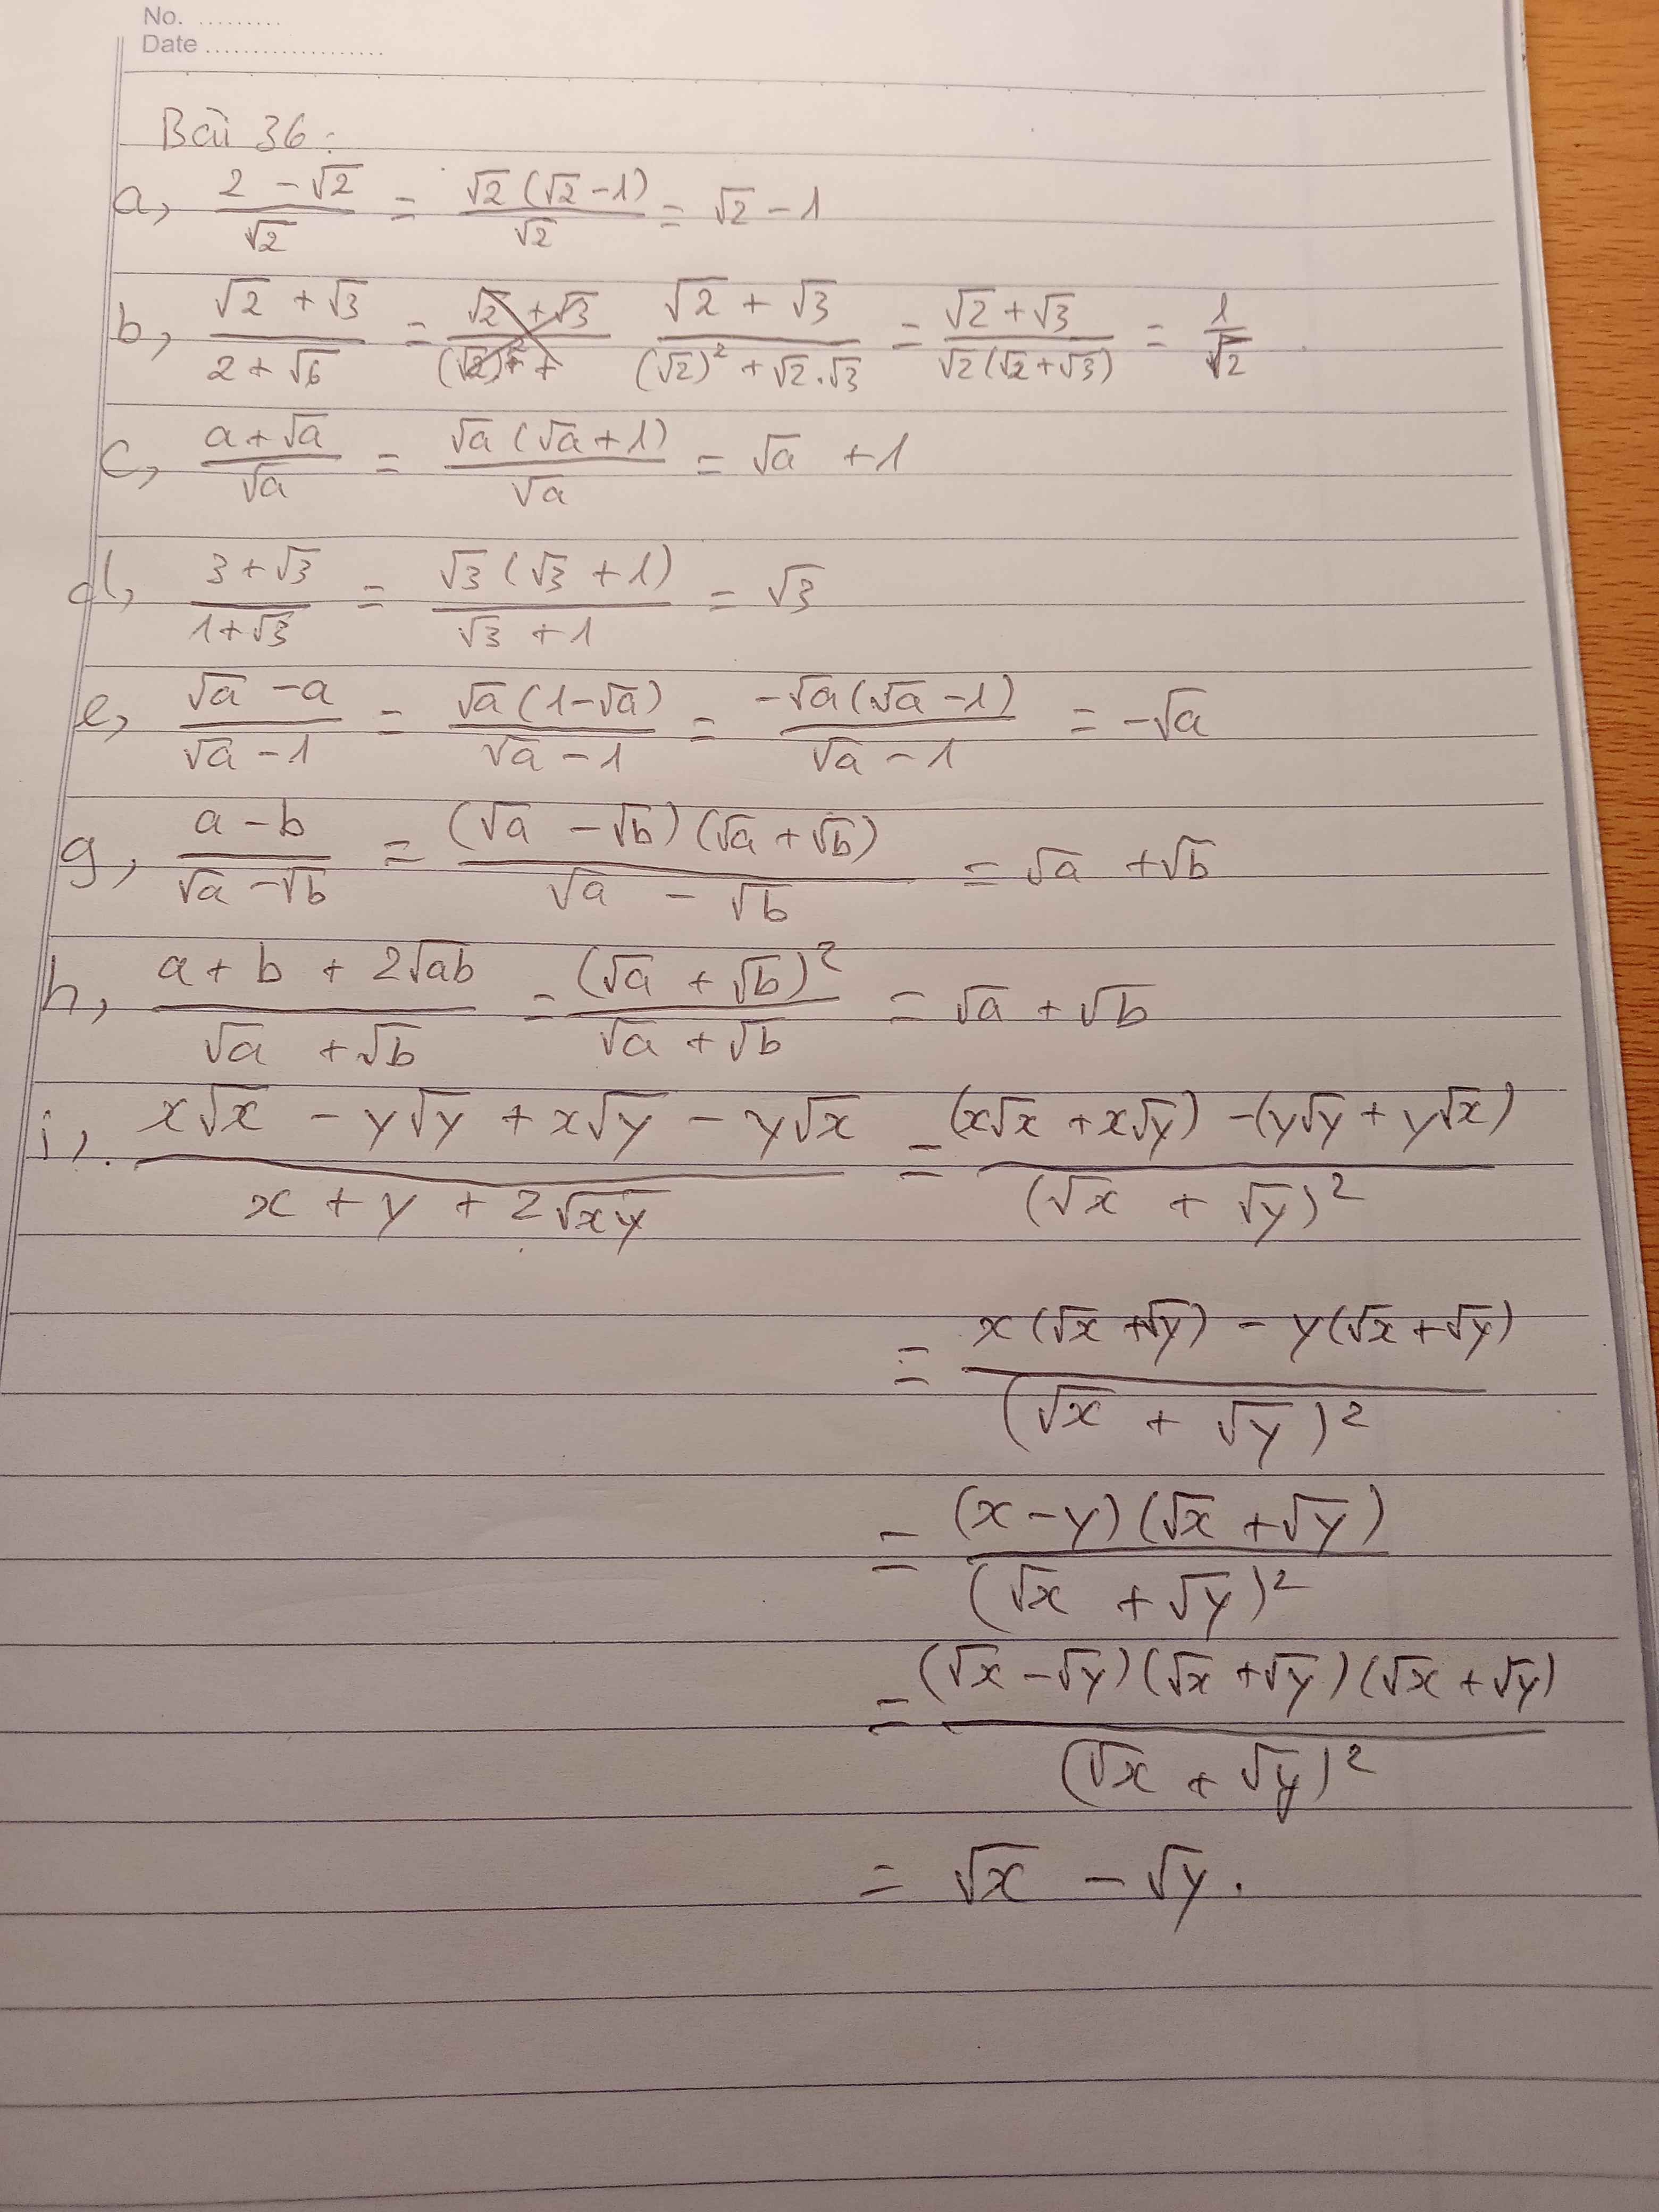 No. .........
Date ...................
Bài 36:
a, (2 - √2)/√2 = √2(√2 - 1)/√2 = √2 - 1
b, (√2 + √3)/(2 + √6) = (√2 + √3)/((√2)² + √2.√3) = (√2 + √3)/(√2(√2 + √3)) = 1/√2
c, (a + √a)/√a = √a(√a + 1)/√a = √a + 1
d, (3 + √3)/(1 + √3) = √3(√3 + 1)/(√3 + 1) = √3
e, (√a - a)/(√a - 1) = √a(1 - √a)/(√a - 1) = -√a(√a - 1)/(√a - 1) = -√a
g, (a - b)/(√a - √b) = (√a - √b)(√a + √b)/(√a - √b) = √a + √b
h, (a + b + 2√ab)/(√a + √b) = (√a + √b)²/(√a + √b) = √a + √b
i, (x√x - y√y + x√y - y√x)/(x + y + 2√xy) = ((x√x + x√y) - (y√y + y√x))/(√x + √y)²
= (x(√x + √y) - y(√x + √y))/(√x + √y)²
= (x - y)(√x + √y)/(√x + √y)²
= (√x - √y)(√x + √y)(√x + √y)/(√x + √y)²
= √x - √y.